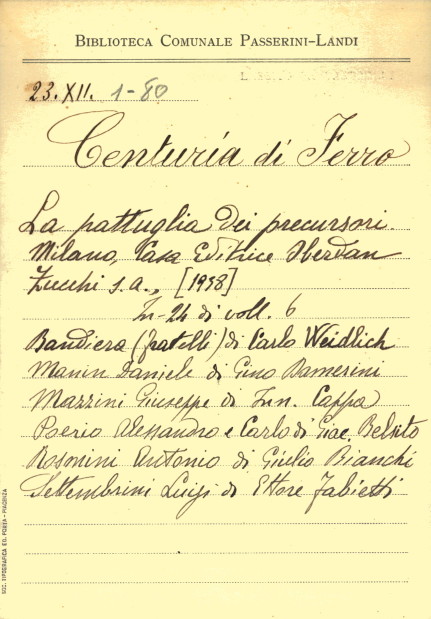 BIBLIOTECA COMUNALE PASSERINI-LANDI
23. XII. 1-80
Centuria di Ferro
La pattuglia dei precursori.
Milano, Casa Editrice Oberdan
Zucchi s.a., [1938]
In-24 di voll. 6
Bandiera (fratelli) di Carlo Weidlich
Manin Daniele di Gino Damerini
Mazzini Giuseppe di Inn. Cappa
Poerio Alessandro e Carlo di Giac. Belsito
Rosmini Antonio di Giulio Bianchi
Settembrini Luigi di Ettore Fabietti
SOC. TIPOGRAFICA ED. PORTA - PIACENZA